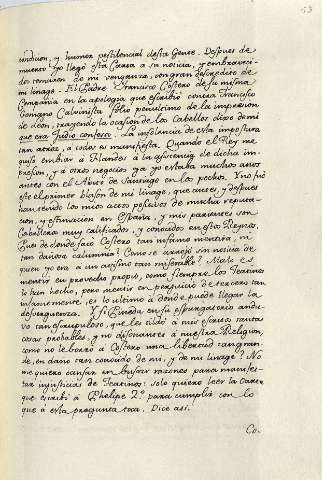 53
undicion, y humor pestilencial desta Gente. Despues de
muerto yo llegó esta Carta a su noticia, y embraveci-
dos tomaron de mi venganza, con gran descredito de
mi linage. El Padre Francisco Costero de su misma
Compañia en la apologia que escribió contra Francisco
Gomaro Calvinista folio penultimo de la impression
de Leon, trayendo la ocasion de los Cabellos dijo de mi
que era Judio confesso. La insolencia de esta impostura
tan atroz, a todos es manifiesta. Quando el Rey me
quiso embiar á Flandes á la assistencia de dicha im-
presion, y á otros negocios ya yo estaba muchos años
antes con el Avito de Santiago en los pechos. Y no fué
este el primer blason de mi linage, que antes, y despues
han tenido los mios actos positivos de mucha reputa-
cion, y estimacion en España, y mis parientes son
Cavalleros muy calificados, y conocidos en estos Reynos.
Pues de donde sacó Costero tan infame mentira, ni
tan dañosa calumnia? Como se arrojó sin noticia de
quien yo era a un juizio tan miserable? Malo es
mentir en provecho propio, como siempre los Teatinos
lo han hecho, pero mentir en perjuicio de terceros tan
infamemente, es lo ultimo á donde puede llegar la
desverguenza. Y si Pineda en su expurgatorio andu-
vo tan escrupuloso, que les tildó a mis escritos tantas
cosas probables, y no disonantes á nuestra Religion,
como no le borró á Costero una libertad tan gran-
de, en daño tan conocido de mi, y de mi linage? No
me quiero cansar en buscar razones para manifes-
tar injusticias de Teatinos: solo quiero leer la Carta
que escribí á Phelipe 2.º para cumplir con lo
que á esta pregunta toca. Dice assi.
Co.